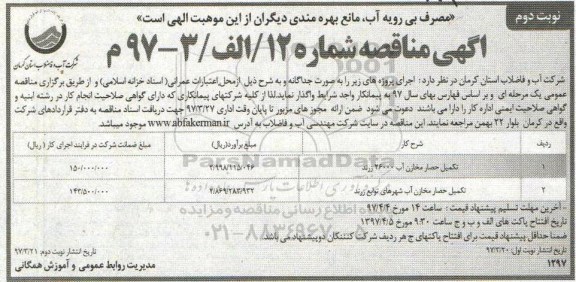 نوبت دوم
«مصرف بی رویه آب، مانع بهره مندی دیگران از این موهبت الهی است»
آگهی مناقصه شماره ۱۲/الف/۳-۹۷ م
شرکت آب و فاضلاب استان کرمان
شرکت آب و فاضلاب استان کرمان در نظر دارد: اجرای پروژه های زیر را به صورت جداگانه و به شرح ذیل ازمحل اعتبارات عمرانی (اسناد خزانه اسلامی) و از طریق برگزاری مناقصه
عمومی یک مرحله ای و بر اساس فهارس بهای سال ۹۷ به پیمانکار واجد شرایط واگذار نماید،لذا از کلیه شرکتهای پیمانکاری که دارای گواهی صلاحیت انجام کار در رشته ابنیه و
گواهی صلاحیت ایمنی اداره کار را دارا می باشند دعوت می شود ضمن ارائه مجوز های مزبور تا پایان وقت اداری ۹۷/۳/۲۷ جهت دریافت اسناد مناقصه به دفتر قراردادهای شرکت
واقع در کرمان بلوار ۲۲ بهمن مراجعه نمایند. این مناقصه در سایت شرکت مهندسی آب و فاضلاب به آدرس www.abfakerman.ir موجود میباشد.
ردیف شرح کار مبلغ برآورد(ریال) مبلغ ضمانت شرکت در فرایند اجرای کار (ریال)
۱ تکمیل حصار مخازن آب ۲۶۰۰۰ زرند ۲/۹۹۸/۱۲۵/۰۴۶ ۱۵۰/۰۰۰/۰۰۰
۲ تکمیل حصار مخازن آب شهرهای توابع زرند ۲/۸۶۹/۲۸۳/۹۳۲ ۱۴۳/۵۰۰/۰۰۰
- آخرین مهلت تسلیم پیشنهاد قیمت: ساعت ۱۴ مورخ ۹۷/۴/۴
تاریخ افتتاح پاکت های الف و ب و ج ساعت ۹:۳۰ مورخ ۱۳۹۷/۴/۵
ضمنا حداقل پیشنهاد قیمت برای افتتاح پاکتهای ج هر ردیف شرکت کنندگان دو پیشنهاد می باشد.
تاریخ انتشار نوبت اول: ۹۷/۳/۲۰
تاریخ انتشار نوبت دوم: ۹۷/۳/۲۱
۱۲۹۷
مدیریت روابط عمومی و آموزش همگانی
ParsNamadData
۰۲۱-۸۸۳۴۹۶۷۰-۵